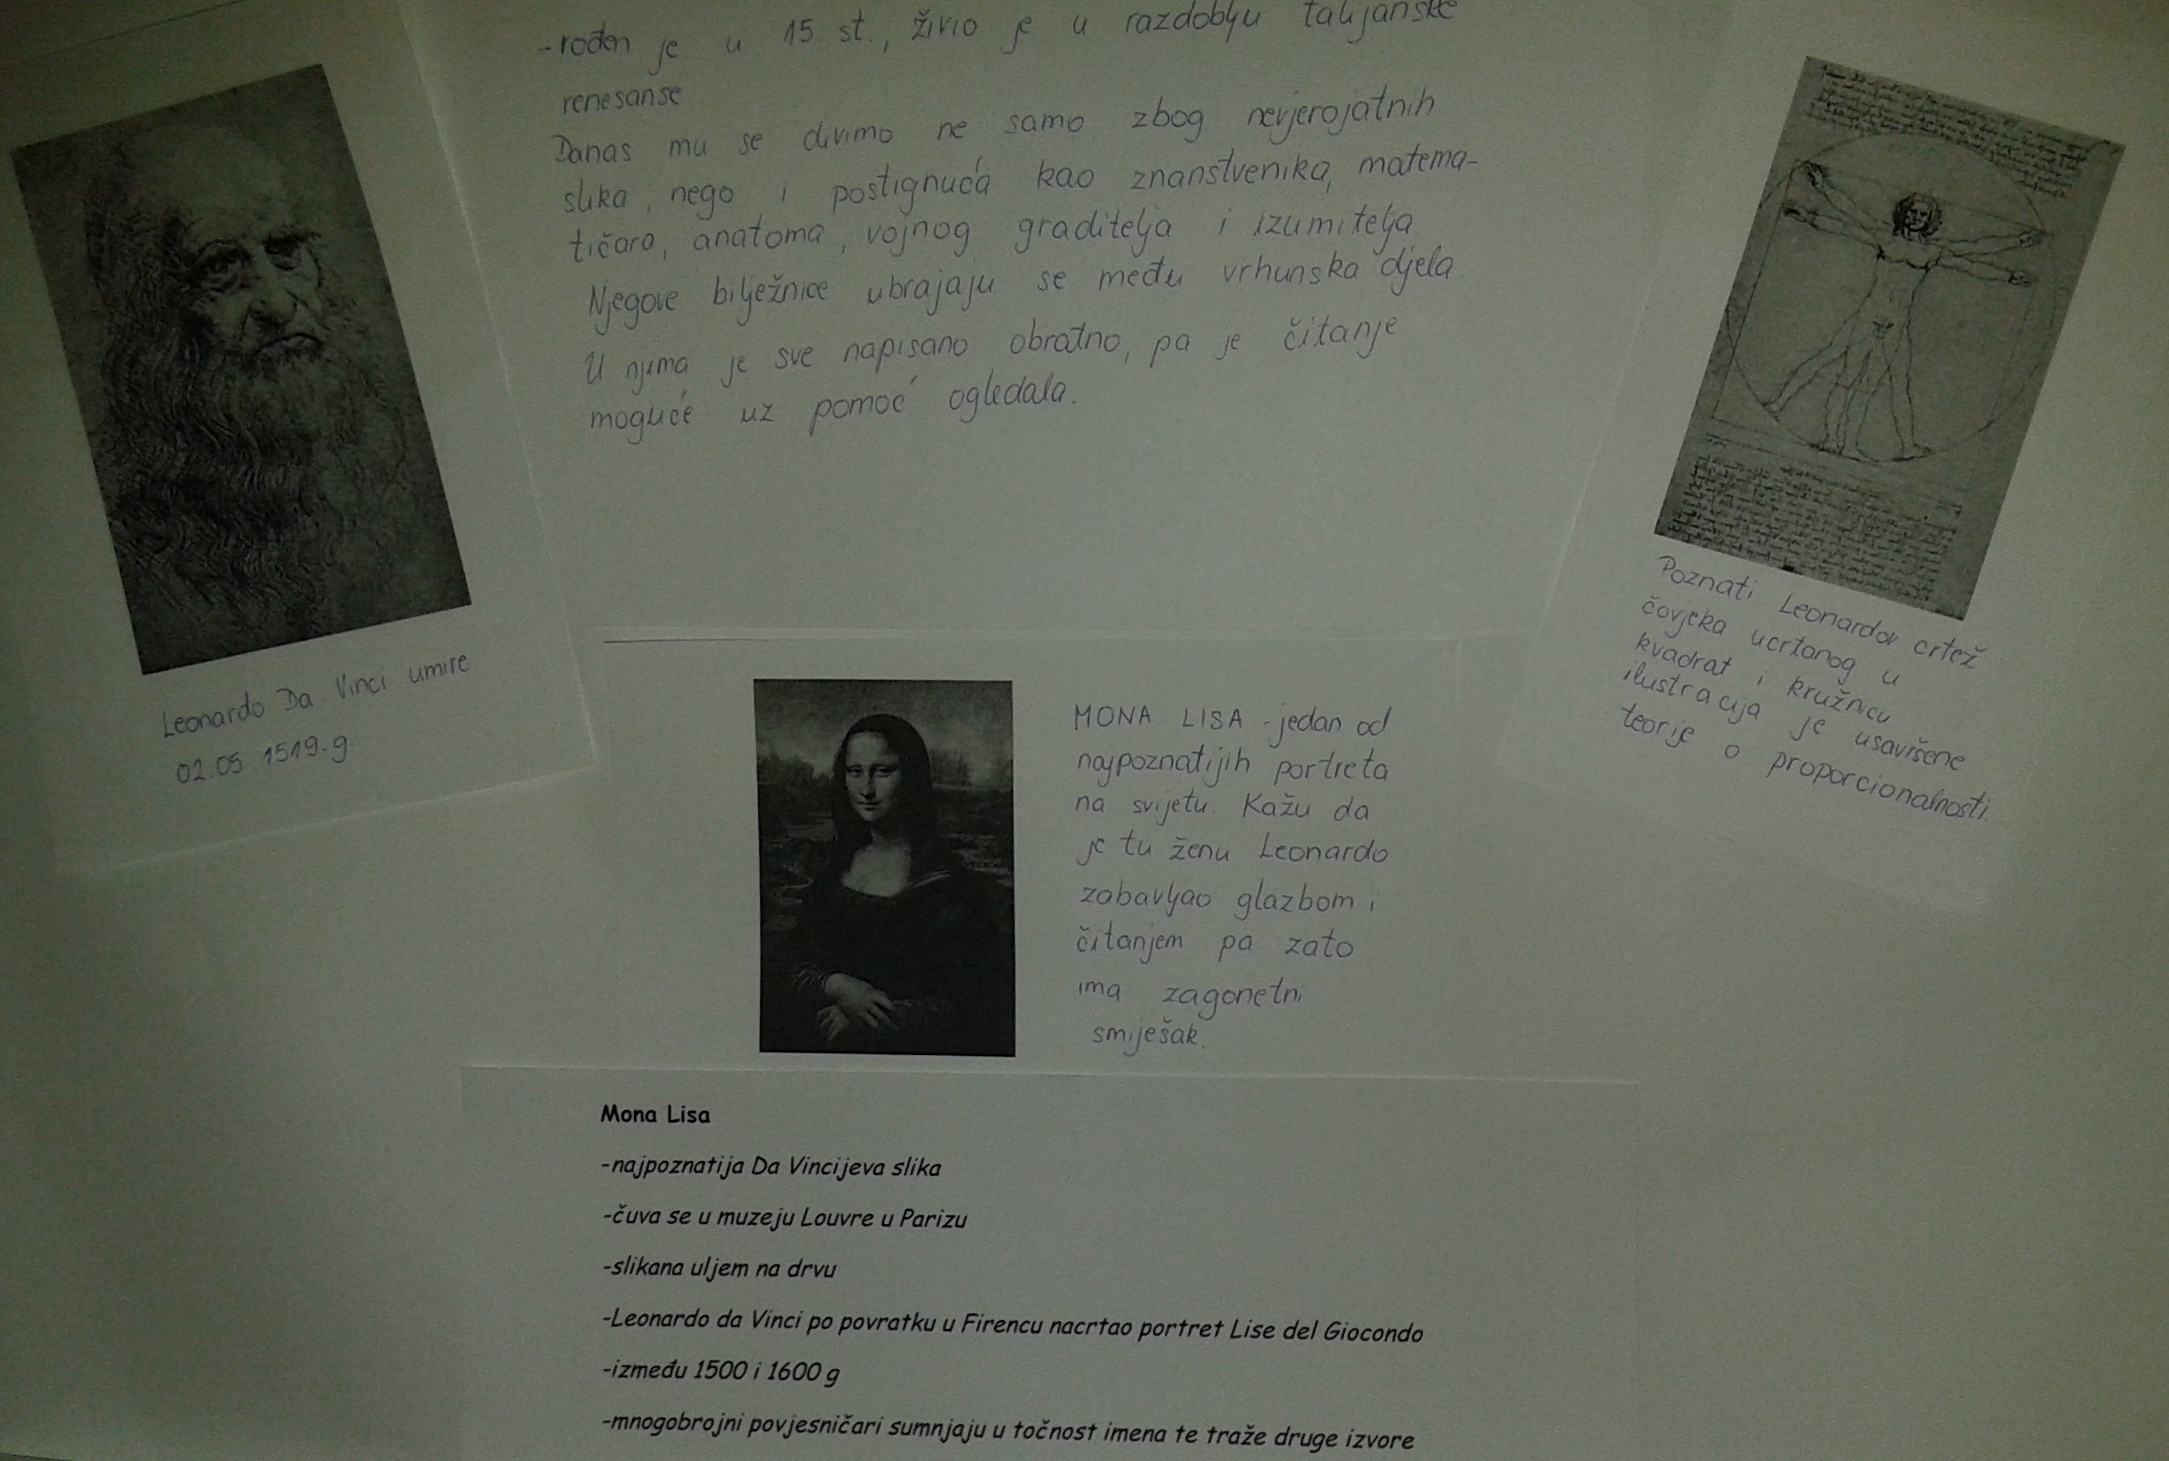 -rođen je u 15 st., živio je u razdoblju talijanske
renesanse
Danas mu se divimo ne samo zbog nevjerojatnih
slika, nego i postignuća kao znanstvenika, matema-
tičara, anatoma, vojnog graditelja i izumitelja.
Njegove bilježnice ubrajaju se među vrhunska djela
U njima je sve napisano obratno, pa je čitanje
moguće uz pomoć ogledala.
Leonardo Da Vinci umire
02.05 1519.g.
Poznati Leonardov crtež
čovjeka ucrtanog u
kvadrat i kružnicu
ilustracija je usavršene
teorije o proporcionalnosti.
MONA LISA - jedan od
najpoznatijih portreta
na svijetu. Kažu da
je tu ženu Leonardo
zabavljao glazbom i
čitanjem pa zato
ima zagonetni
smiješak.
Mona Lisa
-najpoznatija Da Vincijeva slika
-čuva se u muzeju Louvre u Parizu
-slikana uljem na drvu
-Leonardo da Vinci po povratku u Firencu nacrtao portret Lise del Giocondo
-između 1500 i 1600 g
-mnogobrojni povjesničari sumnjaju u točnost imena te traže druge izvore